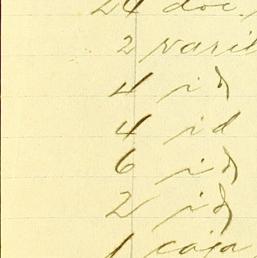 24 doc.
2 varil
4 id
4 id
6 id
2 id
1 caja